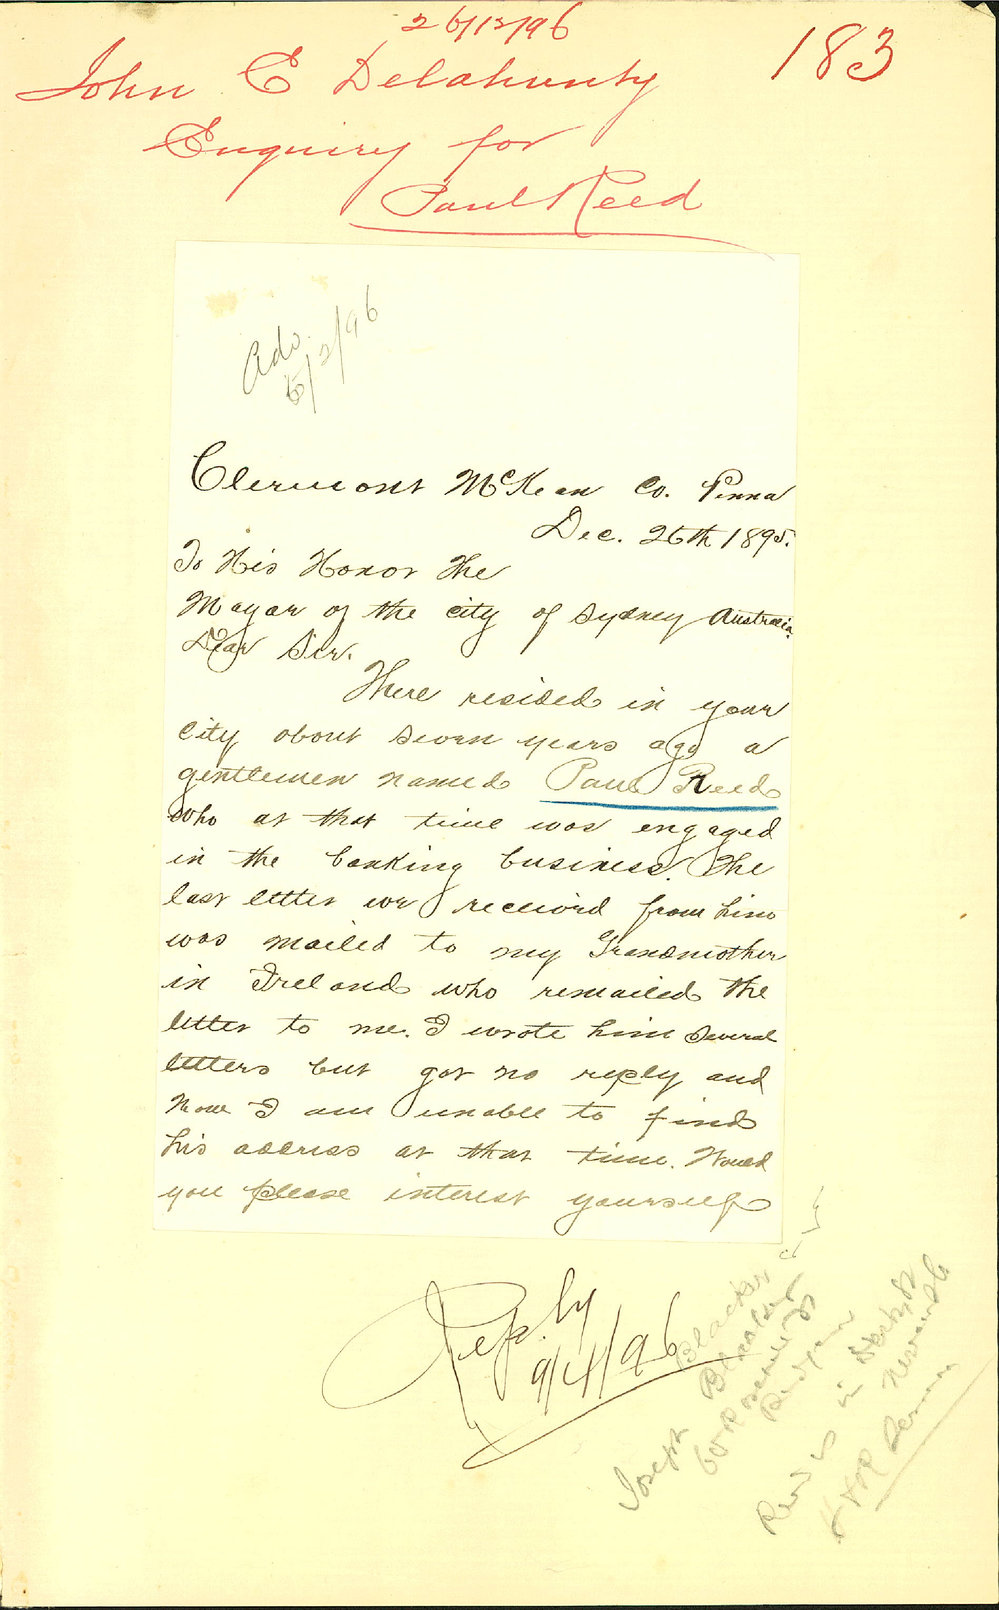 26/12/96
183
John E Delahunty
Enquiry for
Paul Reed
Adv.
5/2/96
Clermont McKean Co. Penna
Dec. 26th 1895.
To His Honor The
Mayor of the city of Sydney Australia.
Dear Sir.
There resided in your
city about seven years ago a
gentlemen named Paul Reed
who at that time was engaged
in the banking business. The
last letter we received from him
was mailed to my Grandmother
in Ireland who remailed the
letter to me. I wrote him several
letters but got no reply and
now I am unable to find
his address at that time. Would
you please interest yourself
Reply
9/4/96
Joseph Blacket
Redfern
Reed is in Darby St
Newcastle